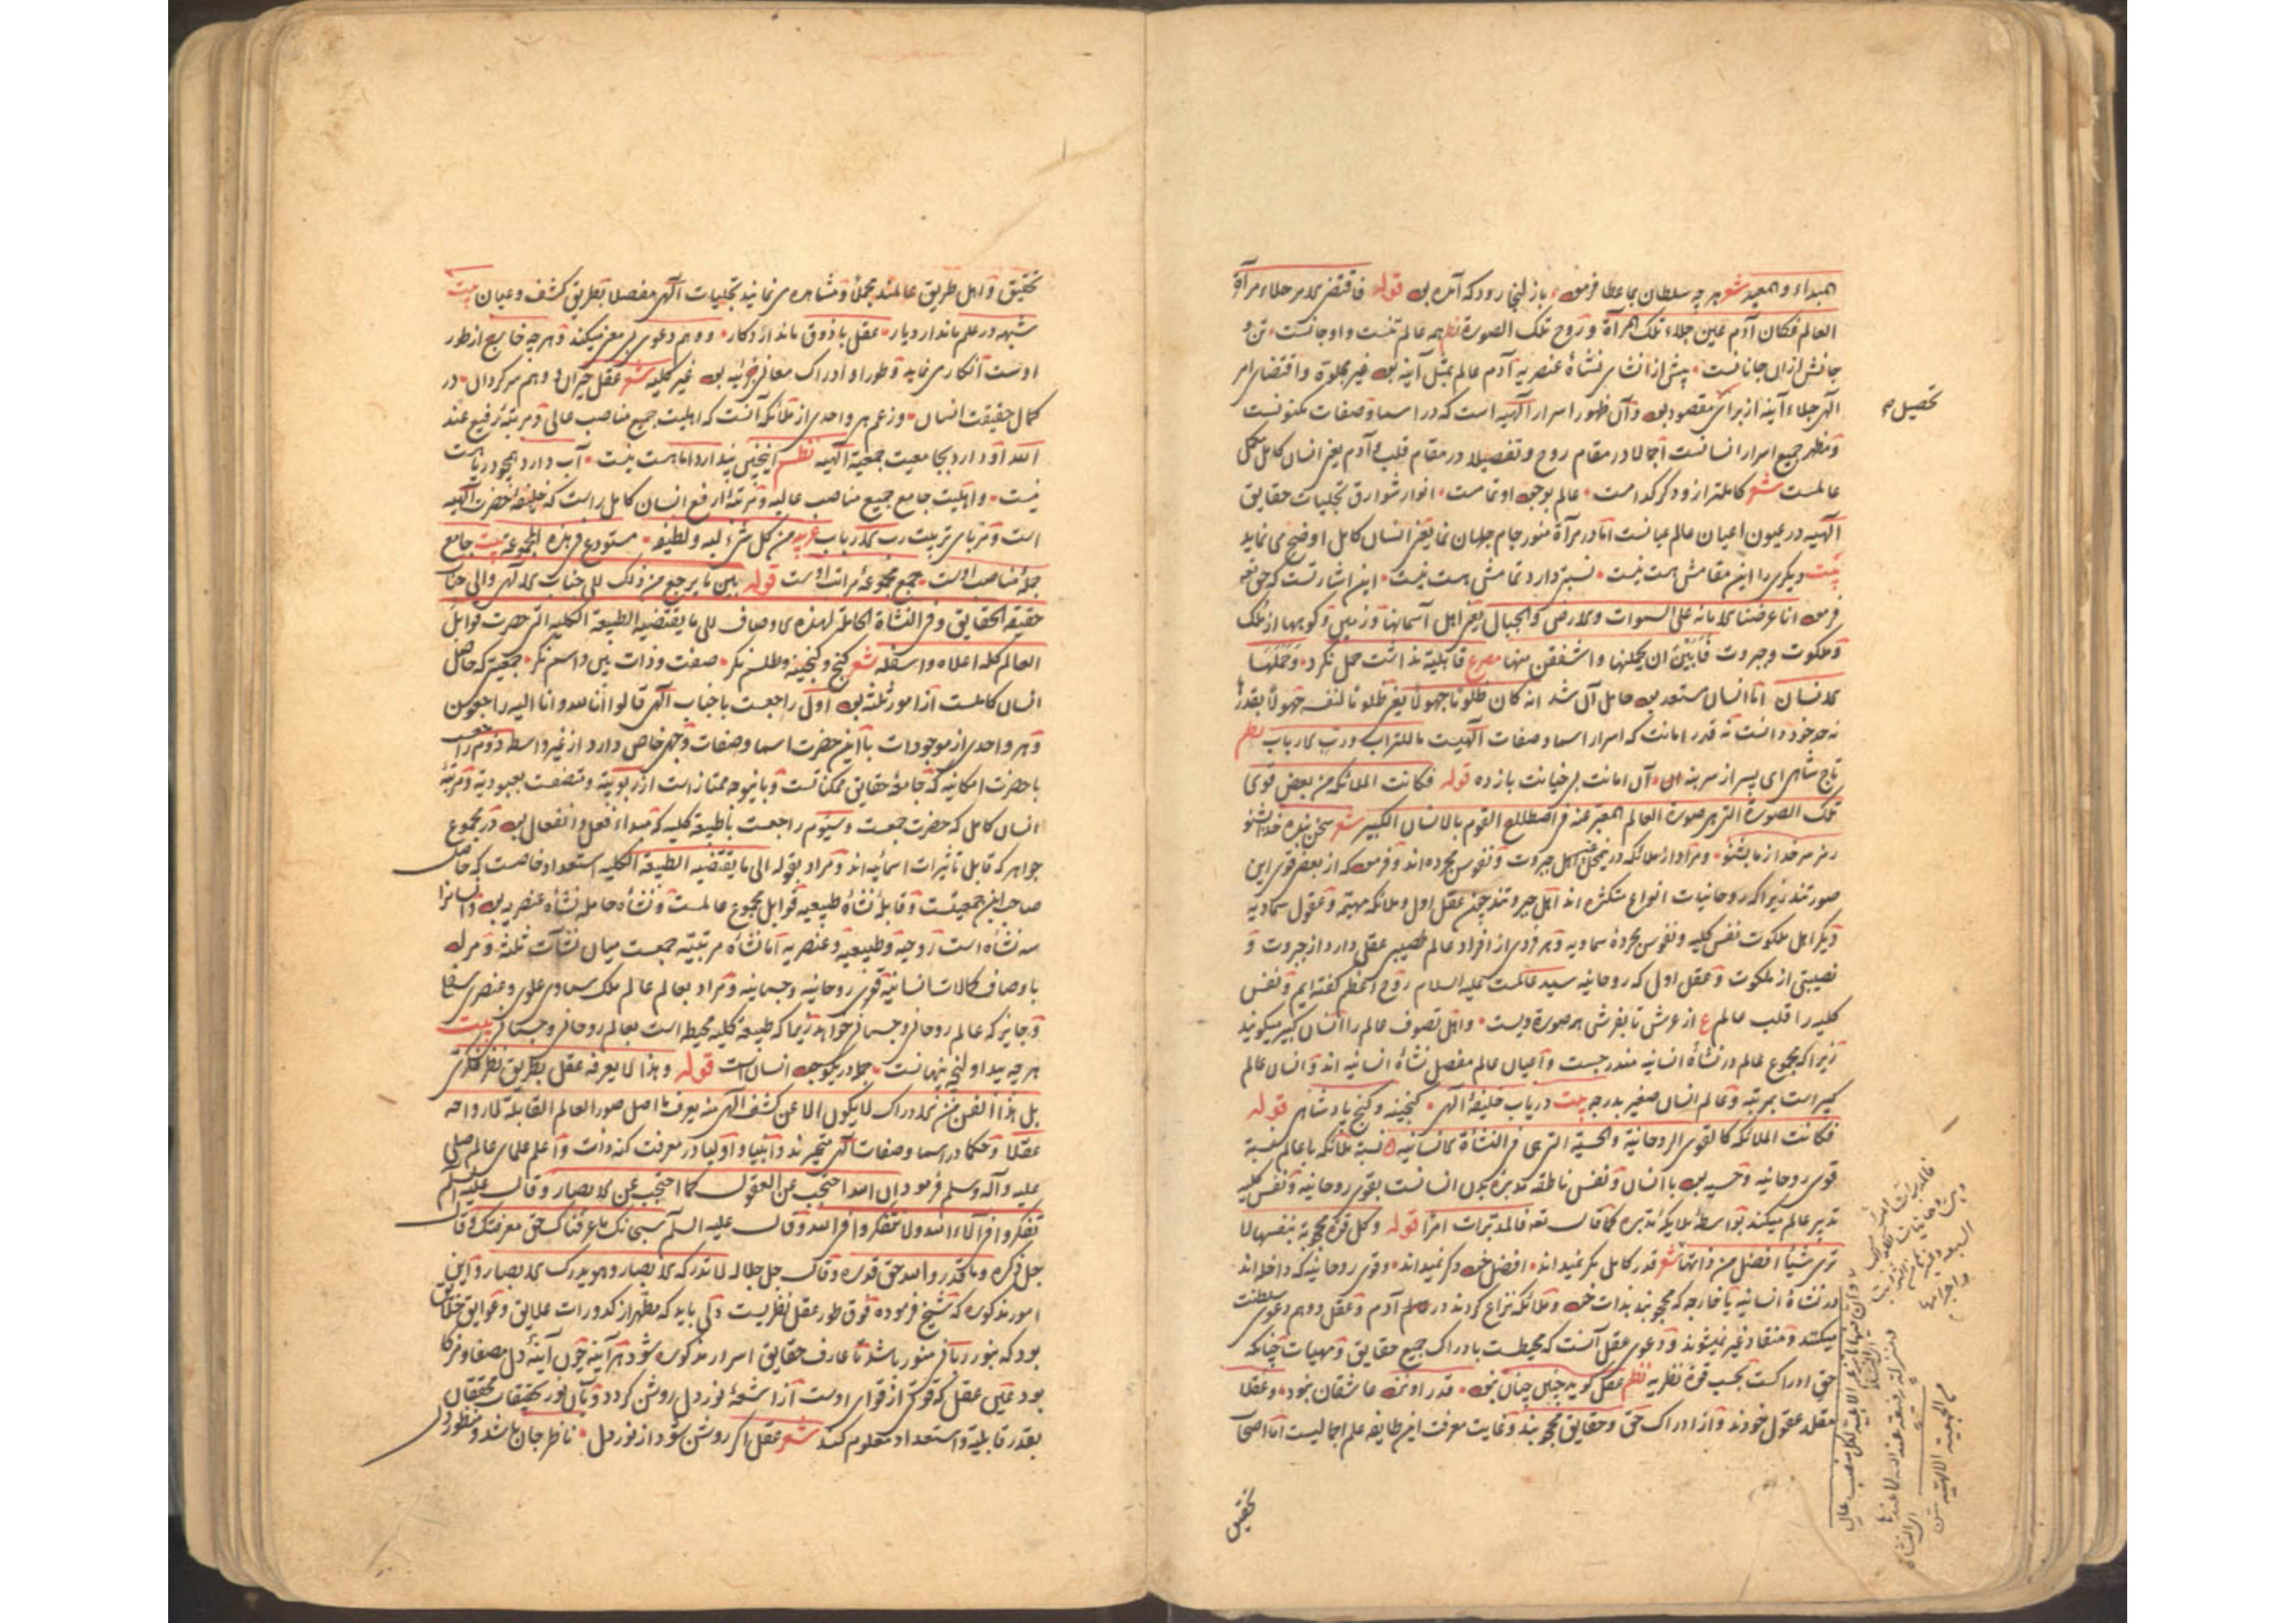 المبداء والمعید شعر هر چه سلطان ما عطا فرمود باز آنجا رود که آمده بود قوله فاقتضی الامر جلاء مرآة
العالم فکان آدم عین جلاء تلک المرآة و روح تلک الصورة نظم همه عالم تنست و او جانست تن و
جانش از آن جانانست پیش از انشای نشأة عنصریه آدم عالم بمثل آینه بود غیر مجلوة و اقتضای امر
الهی جلاء آینه از برای مقصود بود و آن ظهور اسرار الهیه است که در اسما و صفات مکنونست
تحصیل
و مظهر جمیع اسرار انسانست اجمالا در مقام روح و تفصیلا در مقام قلب و آدم یعنی انسان کامل مکمل
عالمست شعر کاملتر از و دگر کدامست عالم بوجود او تمامست انوار شوارق تجلیات حقایق
الهیه در عیون اعیان عالم عیانست اما در مرآة منور جام جهان نما یعنی انسان کامل اوضح می نماید
بیت دیگری را این مقامش هست نیست نسبتی دارد تمامش هست نیست این اشارتست که حق تعه
فرمود انا عرضنا الامانة علی السموات والارض والجبال یعنی اهل آسمانها و زمین و کوهها از ملک
و ملکوت و جبروت فابین ان یحملنها واشفقن منها مصرع قابلیت نداشت حمل نکرد وحملها
الانسان اما انسان مستعد بود حامل آن شد انه کان ظلوما جهولا یعنی ظلوما لنفسه جهولا بقدرها
نه حد خود دانست نه قدر امانت که اسرار اسما و صفات الهیست ما للتراب و رب الارباب نظم
تاج شاهی ای پسر از سر بنه آن امانت بی خیانت باز ده قوله فکانت الملائکة من بعض قوی
تلک الصورة التی هی صورة العالم المعبر عنه فی اصطلاح القوم بالانسان الکبیر شعر سخن بنده خدا بشنو
رمز سر خدا ز ما بشنو و مراد از ملائکه درین محل اهل جبروت و نفوس مجرده اند و فرمود که از بعض قوی این
صورتند زیرا که روحانیات انواع متکثره اند اهل جبروتند چون عقل اول و ملائکه مهیمه و عقول سماویه
دیگر اهل ملکوت نفس کلیه و نفوس مجردهٔ سماویه و هر فردی از افراد عالم نصیبی عقلی دارد از جبروت و
نصیبی از ملکوت و عقل اول که روحانیه سید عالمست علیه السلام روح اعظم گفته ایم و نفس
کلیه را قلب عالم ع از عرش تا بفرش همه صورة ویست و اهل تصوف عالم را انسان کبیر میگویند
زیرا که مجموع عالم در نشأة انسانیه مندرجست و اعیان عالم مفصل نشأة انسانیه اند و انسان عالم
کبیر است بمرتبه و عالم انسان صغیر بدرجه بیت دریاب خلیفهٔ الهی گنجینه و گنج پادشاهی قوله
فکانت الملائکة کالقوی الروحانیة والحسیة التی هی فی النشأة الانسانیه نسبة ملائکه با عالم نسبة
قوی روحانیه و حسیه بود با انسان و نفس ناطقه مدبره بدن انسانست بقوی روحانیه و نفس کلیه
تدبیر عالم میکند بواسطهٔ ملایکهٔ مدبره کما قال تعه فالمدبرات امرا قوله وکل قوة محجوبة بنفسها لا
تری شیئا افضل من ذاتها شعر قدر کامل مگر نمیداند افضل خود دگر نمیداند و قوی روحانیه که داخل اند
در نشأة انسانیه یا خارجه که محجوبند بذات خود و ملائکه نزاع کردند در عالم آدم و عقل و وهم دعوی سلطنت
میکنند و منقاد غیر نمیشوند و دعوی عقل آنست که محیطست بادراک جمیع حقایق و مهیات چنانکه
حق ادراکست بحسب قوة نظریه نظم عقل گوید چنین چنان بود قدر او نزد عاشقان نبود و عقلا
مقلد عقول خودند و از ادراک حق و حقایق محجوبند و غایت معرفت این طایفه علم اجمالیست اما اصحاب
تحقیق
تحقیق و اهل طریق عالمند مجملا و مشاهده می نمایند تجلیات الهی مفصلا بطریق کشف و عیان بیت
شبهه در علم ماندارد یار عقل با ذوق ماندارد کار و وهم دعوی بی معنی میکند و هر چه خارج از طور
اوست انکار می نماید و طور او ادراک معانی جزئیه بود غیر کلیه شعر عقل حیران و وهم سرگردان در
کمال حقیقت انسان و زعم هر واحدی از ملائکه آنست که اهلیت جمیع مناصب عالی و مرتبهٔ رفیع عند
الله او دارد بجامعیت جمعیة الهیه نظم اینچنین پندارد اما هست نیست آب دارد همچو دریا هست
نیست و اهلیت جامع جمیع مناصب عالیه و مرتبهٔ ارفع انسان کامل راست که خلیفهٔ حضرت الهیه
است و مربای تربیت رب الارباب عربیه من کل شیء لبه ولطیفه مستودع فی هذه المجموعة بیت جامع
جملهٔ مناصب اوست مجمع مجموعهٔ مراتب اوست قوله بین ما یرجع من ذلک الی جناب الالهی والی جناب
حقیقة الحقایق وفی النشأة الحاملة لهذه الاوصاف الی ما یقتضیه الطبیعة الکلیة التی حصرت قوابل
العالم کله اعلاه واسفله شعر گنج و گنجینه و طلسم نگر صفت و ذات بین و اسم نگر جمعیتی که حاصل
انسان کاملست از امور ثلثه بود اول راجعست با جناب الهی قالوا انا لله وانا الیه راجعون
و هر واحدی از موجودات با این حضرت اسما و صفات وجهی خاص دارد از غیر واسطه دوم راجعست
با حضرت امکانیه که جامعهٔ حقایق ممکناتست و باینوجه ممتاز است از ربوبیة و متصف بعبودیة و مرتبهٔ
انسان کامل که حضرت جمعیت و سیوم راجعست با طبیعة کلیه که مبداء فعل و انفعال بود در مجموع
جواهر که قابل تاثیرات اسمائیه اند و مراد بقوله الی ما یقتضیه الطبیعة الکلیه استعداد خاصست که حاصل
صاحب این جمعیتست و قابلهٔ نشأة طبیعیه قوابل مجموع عالمست و نشأة حامله نشأة عنصریه بود و انسانرا
سه نشأه است روحیه و طبیعیه و عنصریه اما نشأة مرتبتیه جمعست میان نشآت ثلثه و مراد
باوصاف کمالات انسانیه قوی روحانیه و جسمانیه و مراد بعالم عالم ملک سماوی علوی و عنصری سفلی
و جایز که عالم روحانی و جسمانی خواهد زیرا که طبیعة کلیه محیط است بعالم روحانی و جسمانی بیت
هر چه پیدا و آنچه پنهانست جمله در یک وجود انسانست قوله وهذا لا یعرفه عقل بطریق نظر فکری
بل هذا الفن من الادراک لا یکون الا عن کشف الهی منه یعرف ما اصل صور العالم القابلة لارواحه
عقلا و حکما در اسما و صفات الهی متحیرند و انبیا و اولیا در معرفت کنه ذات و اعلم علمای عالم صلی الله
علیه وآله وسلم فرمود ان الله احتجب عن العقول کما احتجب عن الابصار وقال علیه السلم
تفکروا فی آلاء الله ولا تتفکروا فی الله وقال علیه السلم سبحانک ما عرفناک حق معرفتک وقال
جل ذکره وما قدروا الله حق قدره وقال جل جلاله لا تدرکه الابصار وهو یدرک الابصار و این
امور مذکوره که شیخ فرموده فوق طور عقل نظریست دلی باید که مطهر از کدورات علایق و عوایق خلاص
بود که بنور ربانی منور باشد تا عارف حقایق اسرار مذکوره شود هر آینه چون آینهٔ دل مصفا و مزکا
بود عین عقل که قوتی از قوای اوست از اشعهٔ نور دل روشن گردد و بآن نور تحقیقات محققان
بقدر قابلیة و استعداد معلوم کند شعر عقل اگر روشن شود از نور دل ناظر جان باشد و منظور دل